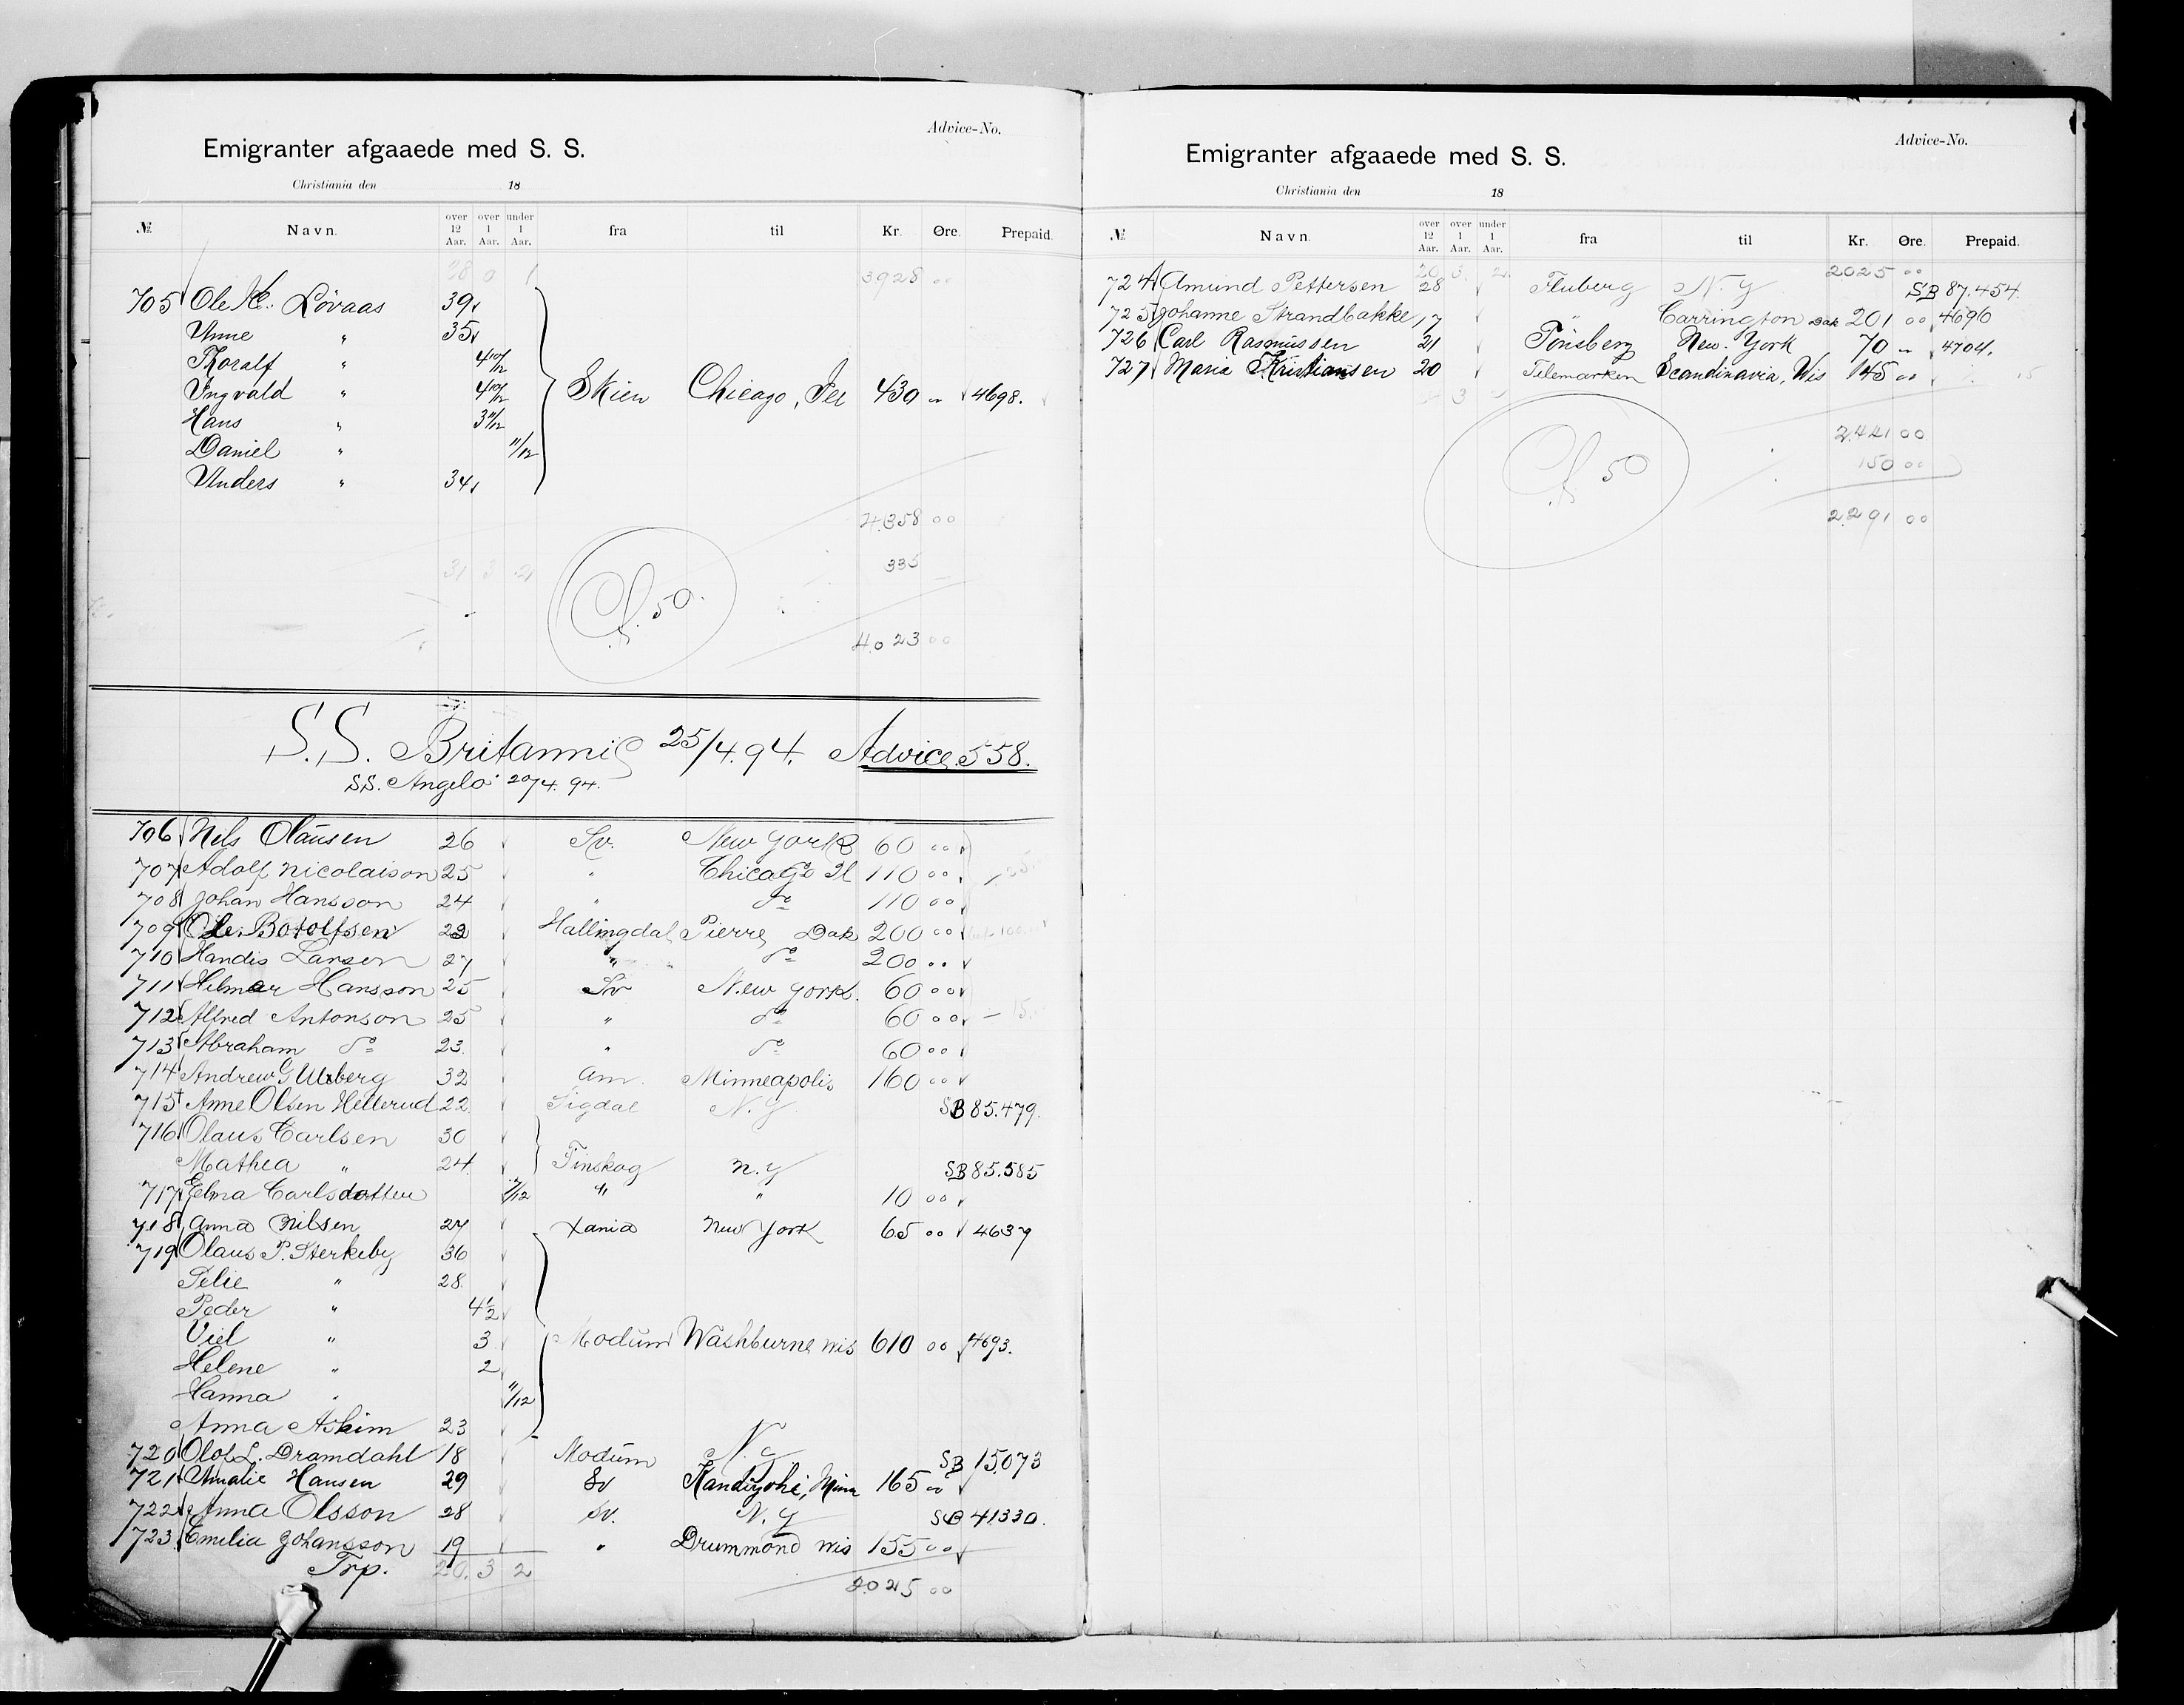 Advice-No.
Emigranter afgaaede med S. S.
Christiania den 18
№ Navn. over 12 Aar. over 1 Aar. under 1 Aar. fra til Kr. Øre. Prepaid.
28 0 1 3928 00
705 Ole Lövaas 39
Anne " 35
Thoralf " 4 10/12
Ingvald " 4 10/12 Skien Chicago, 430 " 4698.
Hans " 3 11/12
Daniel " 11/12
Anders " 34
4.358 00
335
31 3 21
50.
4.023 00
S.S. Britannic 25/4.94. Advice 558.
S.S. Angelo 20/4. 94.
706 Nils Olausen 26 Sv. New York 60 00
707 Adolf Nicolaison 25 " Chicago Il 110 00
708 Johan Hansson 24 " do 110 00
709 Ole Botolfsen 22 Hallingdal Pierre, Dak 200 00
710 Handis Larsen 27 " do 200 00
711 Hilmer Hansson 25 Sv New York. 60 00
712 Alfred Antonson 25 " do 60 00
713 Abraham do 23 " do 60 00
714 Andrew G Ulsberg 32 Am. Minneapolis 160 00
715 Anne Olsen Hellerud 22 Sigdal N.Y. SB 85.479.
716 Olaus Carlsen 30
Mathea " 24 Finskog N.Y SB 85.585
717 Elma Carlsdatter 7/12 " " 10 00
718 Anna Nilsen 27 Xania New York 65 00 4637
719 Olaus P. Sterkeby 36
Pelie " 28
Peder " 4 1/2
Viel " 3 Modum Washburne wis 610 00 4693.
Helene " 2
Hanna " 11/12
Anna Askim 23
720 Olof L. Dramdahl 18 Modum N.Y SB 15.073
721 Amalie Hansen 29 Sv Kandiyohi, Minn 165 00
722 Anna Olsson 28 Sv. N.Y SB 41330.
723 Emilia Johansson 19 " Drummond wis 155 00
Trp. 20. 3 2 2.025 00
Advice-No.
Emigranter afgaaede med S. S.
Christiania den 18
№ Navn. over 12 Aar. over 1 Aar. under 1 Aar. fra til Kr. Øre. Prepaid.
20 3. 2. 2025 00
724 Amund Pettersen 28 Fluberg N.Y SB 87.454.
725 Johanne Strandbakke 17 " Carrington Dak 201 00 4696
726 Carl Rasmussen 21 Tönsberg New York 70 " 4704.
727 Maria Kristiansen 20 Telemarken Scandinavia, Wis 145 00
3
2.441 00
50
150 00
2.291 00